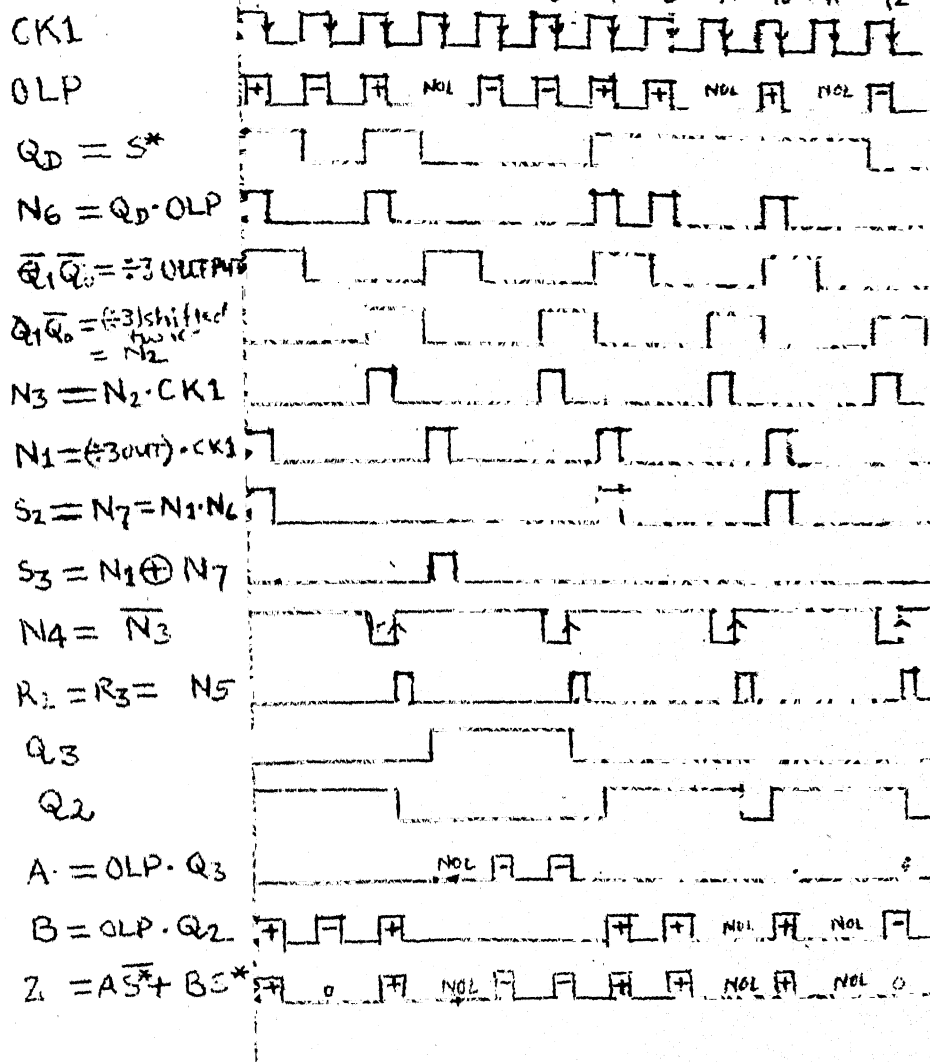 12
CK1
OLP + - + NOL - - + + NOL + NOL -
QD = S*
N6 = QD·OLP
Q̅1Q̅0 = ÷3 OUTPUT
Q1Q̅0 = (÷3) shifted
twice
= N2
N3 = N2·CK1
N1 = (÷3OUT)·CK1
S2 = N7 = N1·N6
S3 = N1⊕N7
N4 = N̅3̅
R2 = R3 = N5
Q3
Q2
A = OLP·Q3 NOL - -
B = OLP·Q2 + - + + + NOL + NOL -
Z = AS̅*̅ + BS* + 0 + NOL - - + + NOL + NOL 0